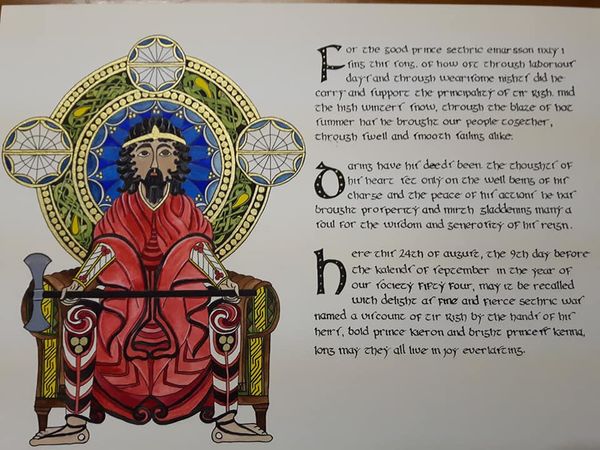 For the good prince sethric einarsson may i
sing this song, of how oft through laborious
days and through wearisome nights did he
carry and support the principality of tir righ. mid
the high winters snow, through the blaze of hot
summer has he brought our people together,
through swell and smooth sailing alike.
daring have his deeds been. the thoughts of
his heart set only on the well being of his
charge and the peace of his actions he has
brought prosperity and mirth gladdening many a
soul for the wisdom and generosity of his reign.
here this 24th of august, the 9th day before
the kalends of september in the year of
our society FIFTY FOUR, may it be recalled
with delight as FINE and fierce sethric was
named a viscount of tir righ by the hands of his
heirs, bold prince kieron and bright princess kenna,
long may they all live in joy everlasting.